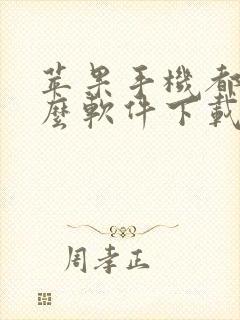 苹果手機都
麼軟件下載
周孝正